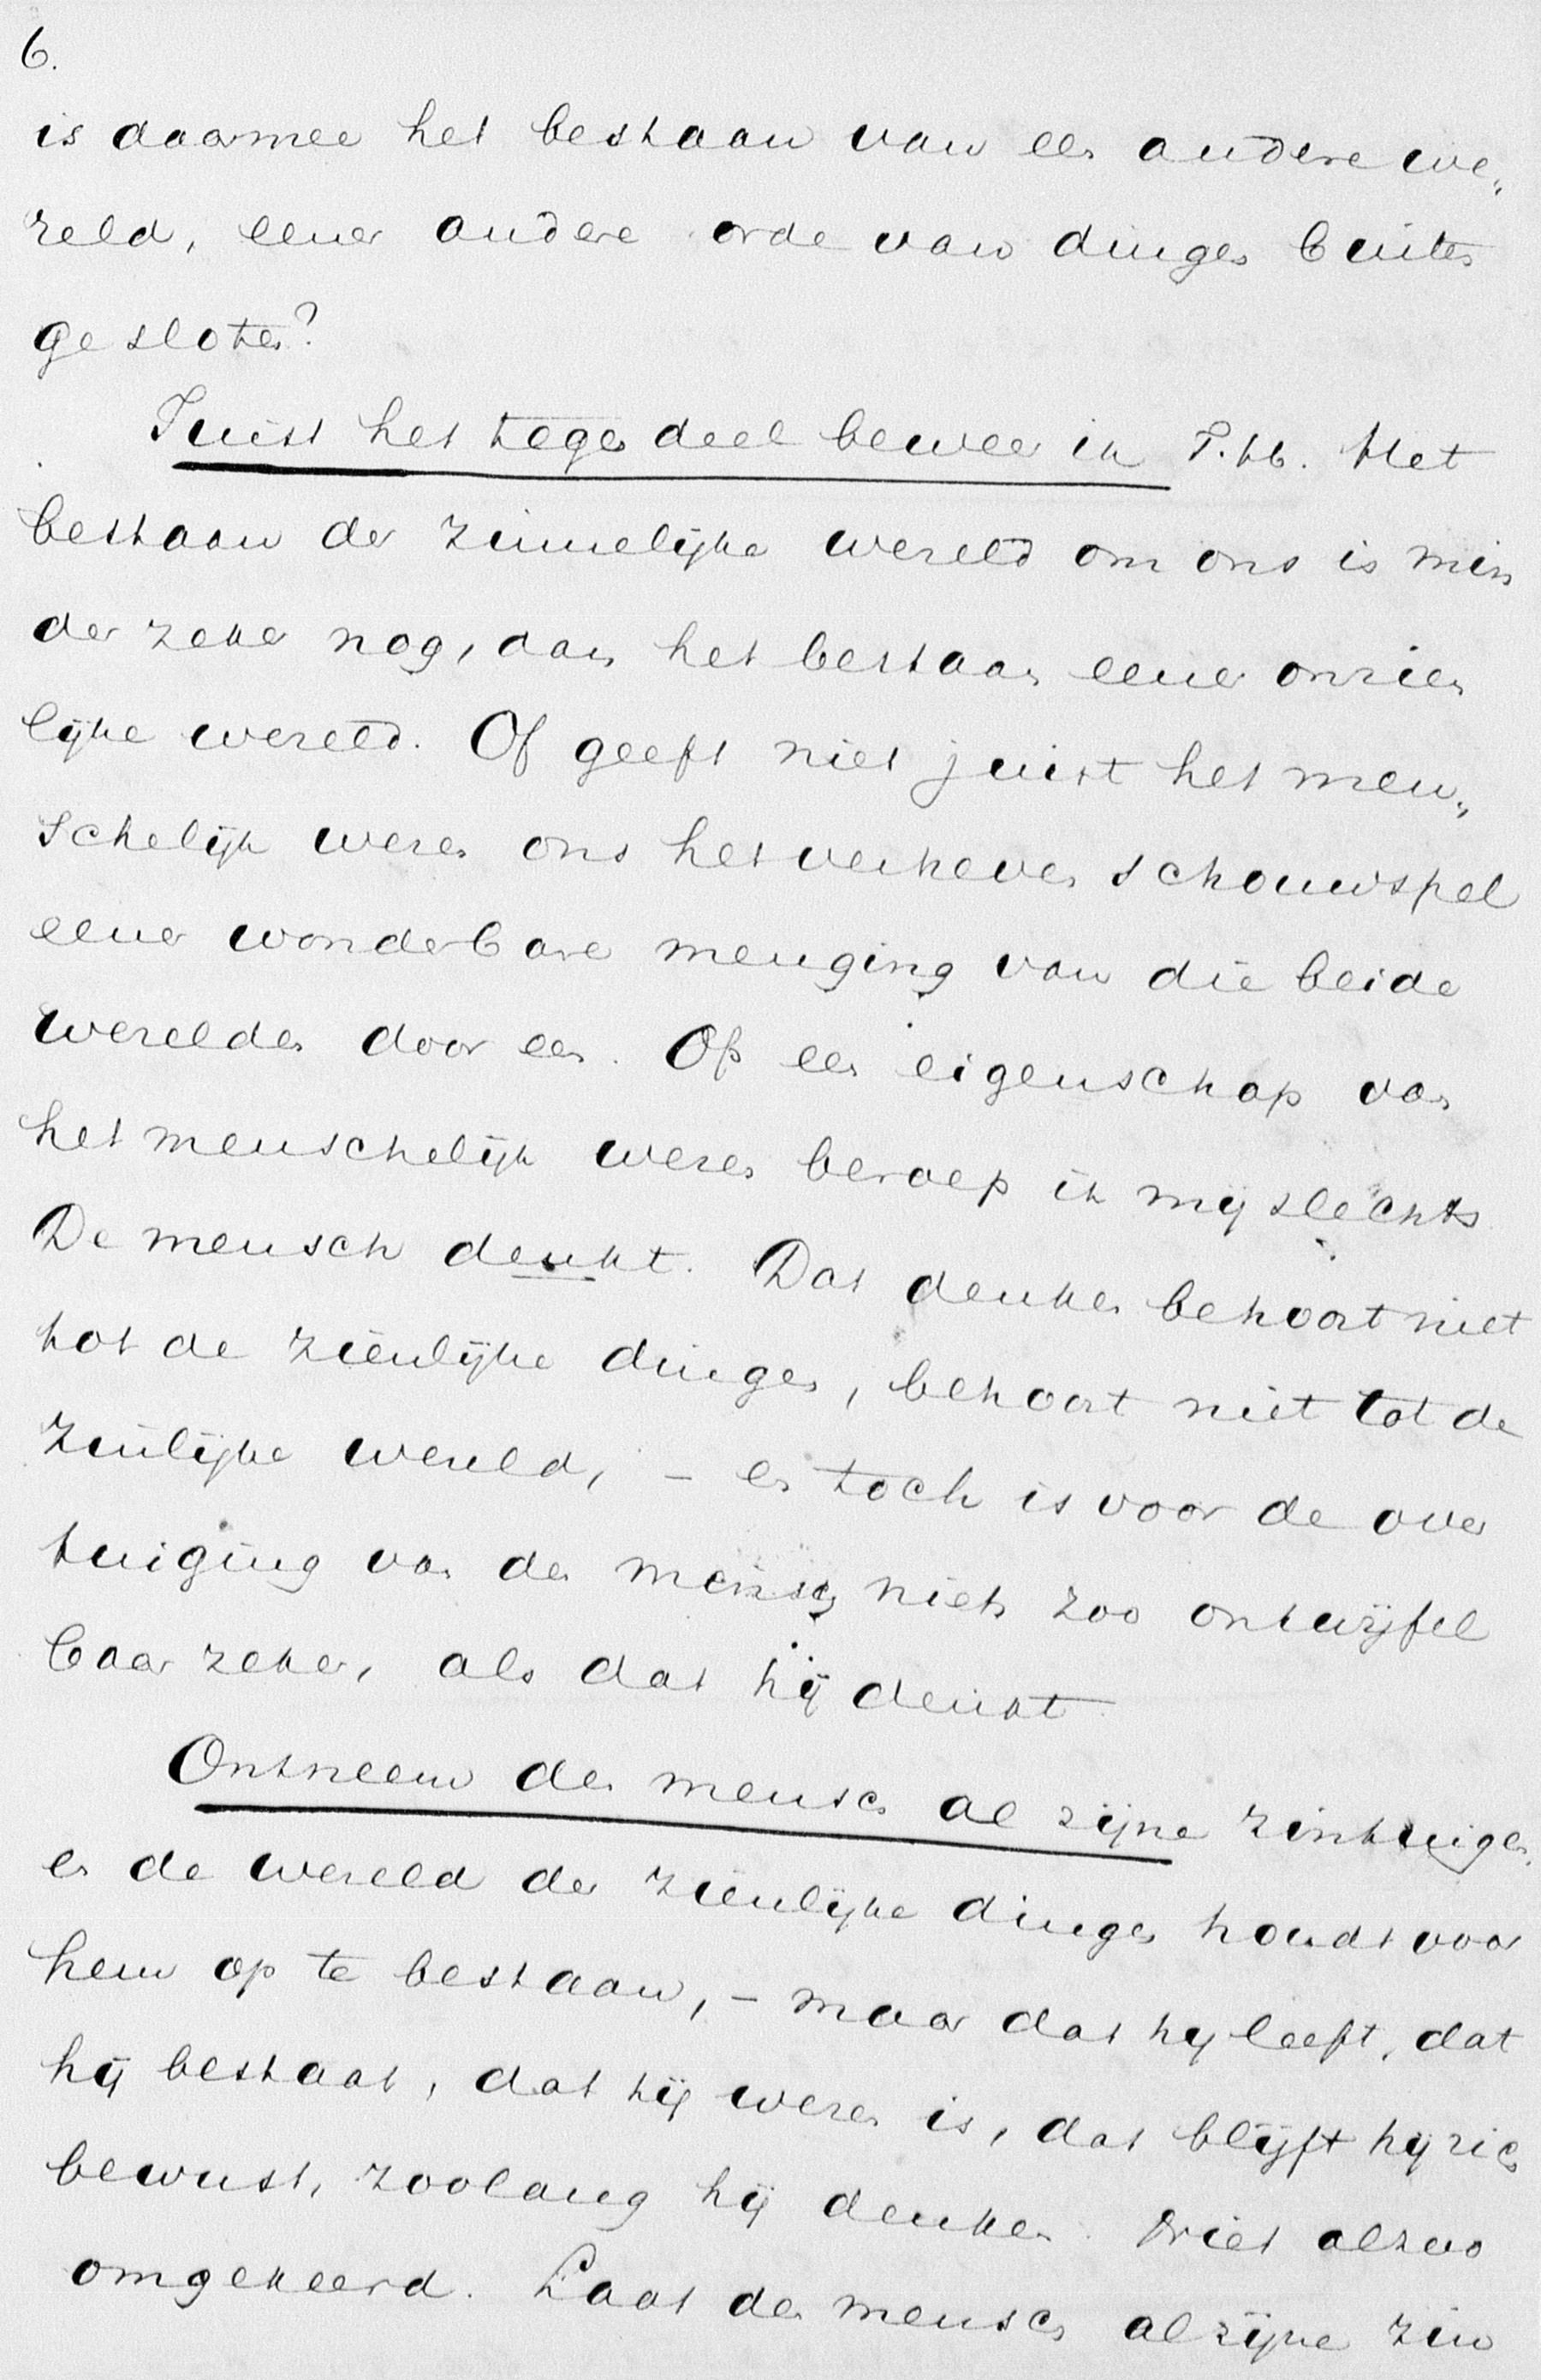 6.
is daarmee het bestaan van een andere we„
reld, eener andere orde van dingen buiten
gesloten?
Juist het tegendeel beweer ik T.H. Het
bestaan der zinnelijke wereld om ons is min
der zeker nog, dan het bestaan eener onzien
lijke wereld. Of geeft niet juist het men„
schelijk wezen ons het verheven schouwspel
eener wonderbare menging van die beide
werelden door een. Op een eigenschap van
het menschelijk wezen beroep ik mij slechts
De mensch denkt. Dat denken behoort niet
tot de zienlijke dingen, behoort niet tot de
zinlijke wereld, – en toch is voor de over
tuiging van den mensch niets zoo ontwijfel
baar zeker, als dat hij denkt.
Ontneem den mensch al zijne zintuigen
en de wereld der zienlijke dingen houdt voor
hem op te bestaan, – maar dat hij leeft, dat
hij bestaat, dat hij wezen is, dat blijft hij zich
bewust, zoolang hij denken. Niet alzoo
omgekeerd. Laat den mensch al zijne zin